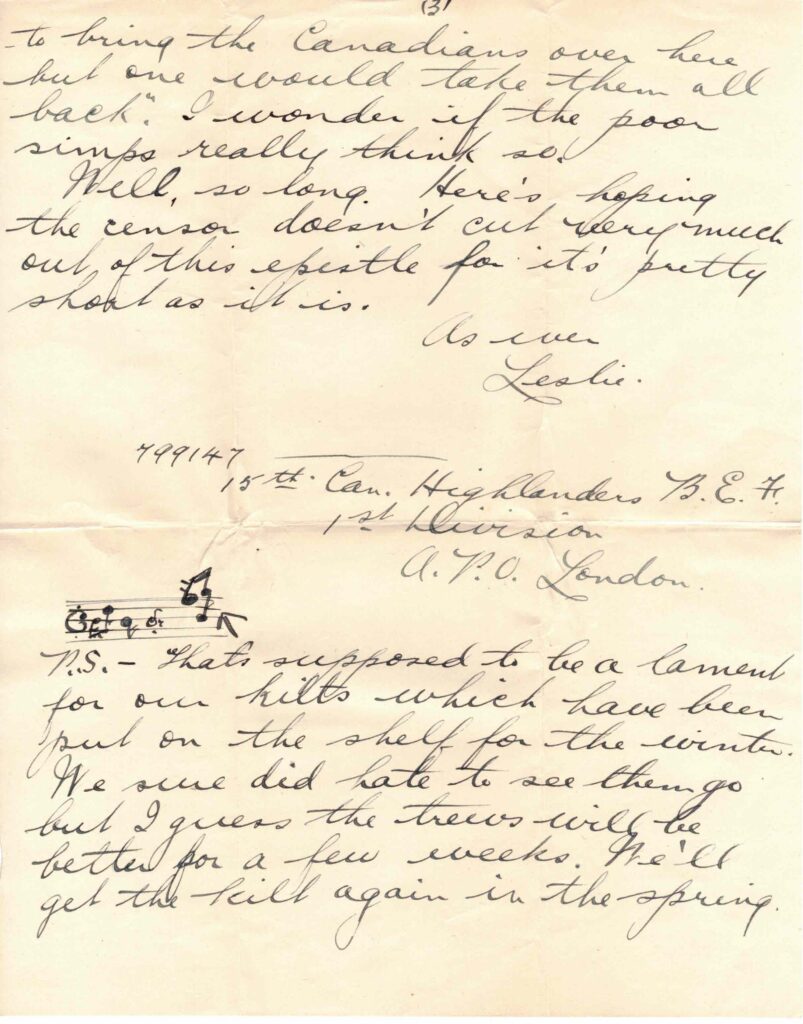 (3)
to bring the Canadians over here
but one would take them all
back". I wonder if the poor
simps really think so.
Well, so long. Here's hoping
the censor doesn't cut very much
out of this epistle for it's pretty
short as it is.
As ever
Leslie.
799147
15th Can. Highlanders B.E.F.
1st Division
A.P.O. London.
P.S. - That's supposed to be a lament
for our kilts which have been
put on the shelf for the winter.
We sure did hate to see them go
but I guess the trews will be
better for a few weeks. We'll
get the kilt again in the spring.